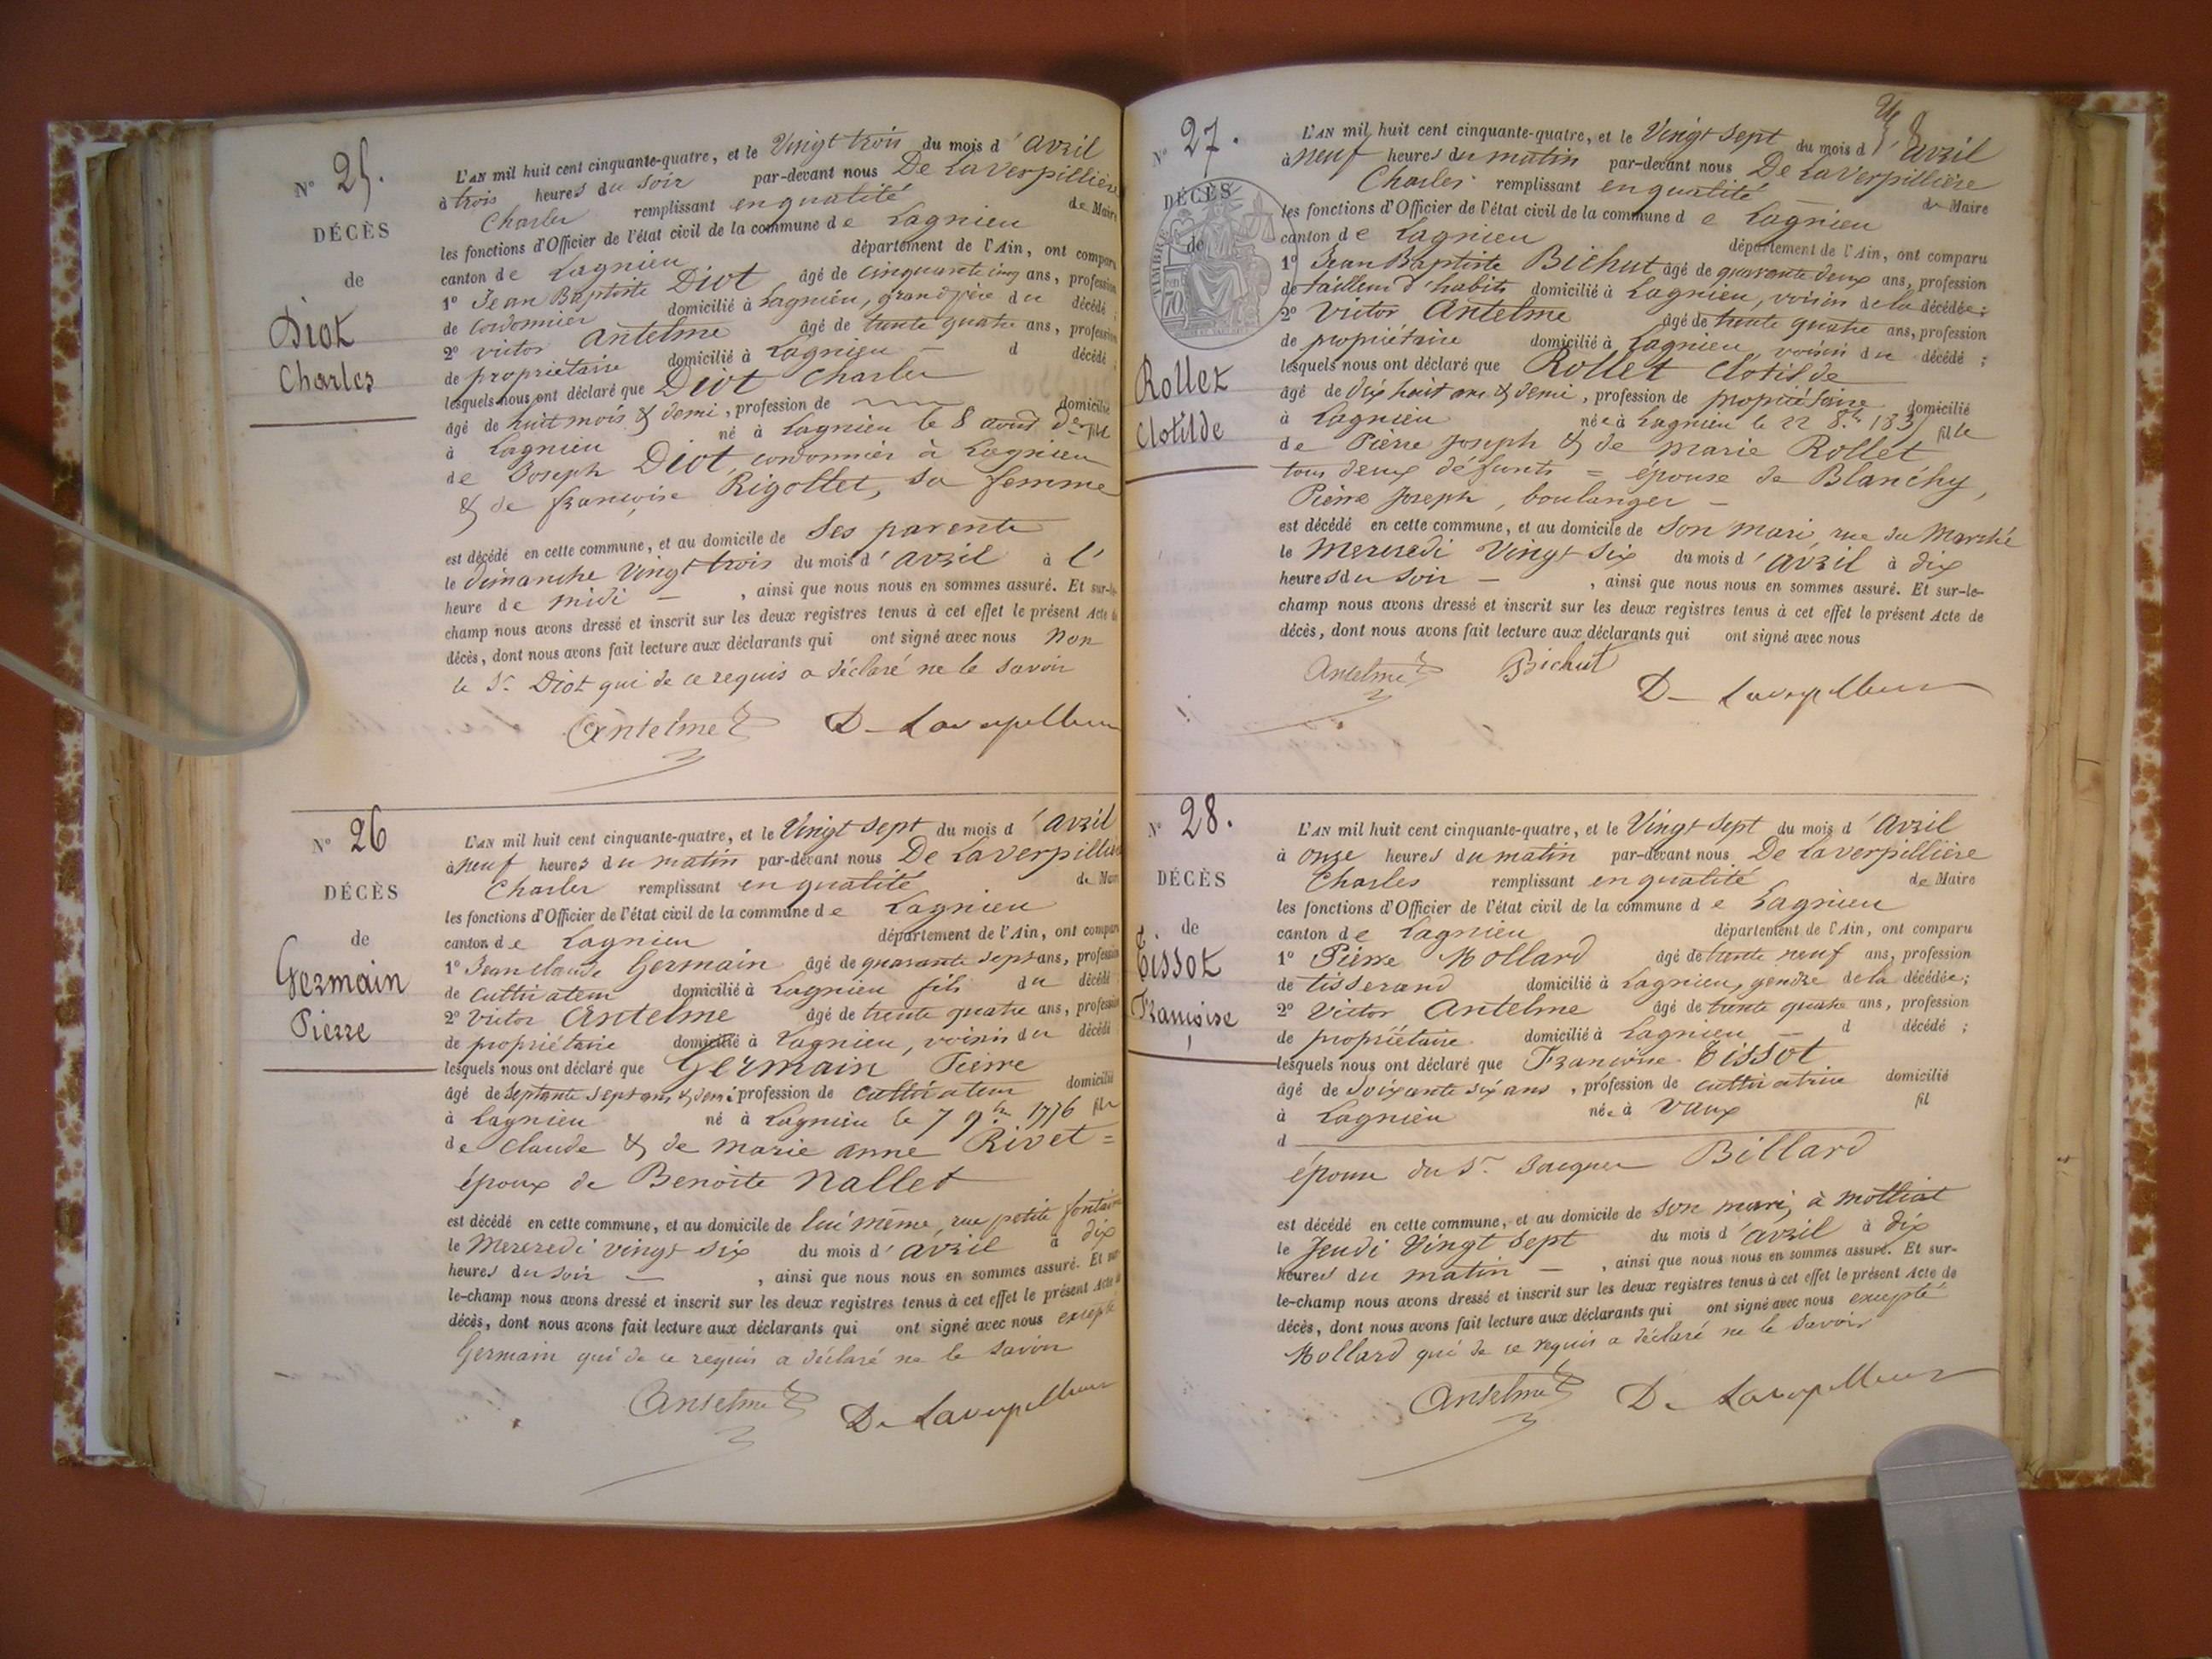 N° 25.
DÉCÈS
de
Diot
Charles
L'AN mil huit cent cinquante-quatre, et le Vingt trois du mois d'avril
à trois heures du soir par-devant nous De Laverpillière
Charles remplissant en qualité de Maire
les fonctions d'Officier de l'état civil de la commune de Lagnieu
canton de Lagnieu département de l'Ain, ont comparu
1° Jean Baptiste Diot âgé de cinquante cinq ans, profession
de cordonnier domicilié à Lagnieu, grand père du décédé;
2° victor Antelme âgé de trente quatre ans, profession
de propriétaire domicilié à Lagnieu – d décédé;
lesquels nous ont déclaré que Diot Charles
âgé de huit mois & demi, profession de domicilié
à Lagnieu né à Lagnieu le 8 aout der fils
de Joseph Diot, cordonnier à Lagnieu
& de françoise Rigollet, sa femme
est décédé en cette commune, et au domicile de Ses parents
le Dimanche Vingt trois du mois d'avril à l'
heure de midi –, ainsi que nous nous en sommes assuré. Et sur-le-
champ nous avons dressé et inscrit sur les deux registres tenus à cet effet le présent Acte de
décès, dont nous avons fait lecture aux déclarants qui ont signé avec nous Non
le Sr Diot qui de ce requis a déclaré ne le savoir
Antelme D– Laverpilliere
N° 26
DÉCÈS
de
Germain
Pierre
L'AN mil huit cent cinquante-quatre, et le Vingt sept du mois d'avril
à neuf heures du matin par-devant nous De Laverpillière
Charles remplissant en qualité de Maire
les fonctions d'Officier de l'état civil de la commune de Lagnieu
canton de Lagnieu département de l'Ain, ont comparu
1° Jean Claude Germain âgé de quarante sept ans, profession
de cultivateur domicilié à Lagnieu fils du décédé
2° Victor Antelme âgé de trente quatre ans, profession
de propriétaire domicilié à Lagnieu, voisin du décédé
lesquels nous ont déclaré que Germain Pierre
âgé de septante sept ans & demi profession de cultivateur domicilié
à Lagnieu né à Lagnieu le 7 9bre 1776 fils
de Claude & de marie anne Rivet =
époux de Benoite Nallet
est décédé en cette commune, et au domicile de lui même, rue petite fontaine
le Mercredi vingt six du mois d'avril à dix
heures du soir –, ainsi que nous nous en sommes assuré. Et sur-
le-champ nous avons dressé et inscrit sur les deux registres tenus à cet effet le présent Acte de
décès, dont nous avons fait lecture aux déclarants qui ont signé avec nous excepté
Germain qui de ce requis a déclaré ne le savoir
Antelme De Laverpilliere
N° 27.
DÉCÈS
de
TIMBRE
70
Rollet
Clotilde
L'AN mil huit cent cinquante-quatre, et le Vingt sept du mois d'avril
à neuf heures du matin par-devant nous De Laverpillière
Charles remplissant en qualité de Maire
les fonctions d'Officier de l'état civil de la commune de Lagnieu
canton de Lagnieu département de l'Ain, ont comparu
1° Jean Baptiste Bichut âgé de quarante deux ans, profession
de tailleur d'habits domicilié à Lagnieu, voisin de la décédée;
2° Victor Antelme âgé de trente quatre ans, profession
de propriétaire domicilié à Lagnieu voisin du décédé;
lesquels nous ont déclaré que Rollet Clotilde
âgé de dix huit ans & demi, profession de propriétaire domicilié
à Lagnieu née à Lagnieu le 22 8bre 183 fille
de Pierre Joseph & de marie Rollet
tous deux défunts = épouse de Blanchy,
Pierre Joseph, boulanger –
est décédé en cette commune, et au domicile de Son mari, rue du Marché
le Mercredi Vingt six du mois d'avril à dix
heures du soir –, ainsi que nous nous en sommes assuré. Et sur-le-
champ nous avons dressé et inscrit sur les deux registres tenus à cet effet le présent Acte de
décès, dont nous avons fait lecture aux déclarants qui ont signé avec nous
Antelme Bichut
D– Laverpilliere
N° 28.
DÉCÈS
de
Tissot
Françoise
L'AN mil huit cent cinquante-quatre, et le Vingt sept du mois d'avril
à onze heures du matin par-devant nous De Laverpillière
Charles remplissant en qualité de Maire
les fonctions d'Officier de l'état civil de la commune de Lagnieu
canton de Lagnieu département de l'Ain, ont comparu
1° Pierre Mollard âgé de trente neuf ans, profession
de tisserand domicilié à Lagnieu, gendre de la décédée;
2° Victor Antelme âgé de trente quatre ans, profession
de propriétaire domicilié à Lagnieu – d décédé;
lesquels nous ont déclaré que Françoise Tissot
âgé de Soixante six ans, profession de cultivatrice domicilié
à Lagnieu née à Vaux fil
d
épouse du Sr Jacques Billard
est décédé en cette commune, et au domicile de son mari, à Molliat
le Jeudi Vingt sept du mois d'avril à dix
heures du matin –, ainsi que nous nous en sommes assuré. Et sur-
le-champ nous avons dressé et inscrit sur les deux registres tenus à cet effet le présent Acte de
décès, dont nous avons fait lecture aux déclarants qui ont signé avec nous excepté
Mollard qui de ce requis a déclaré ne le savoir
Antelme De Laverpilliere